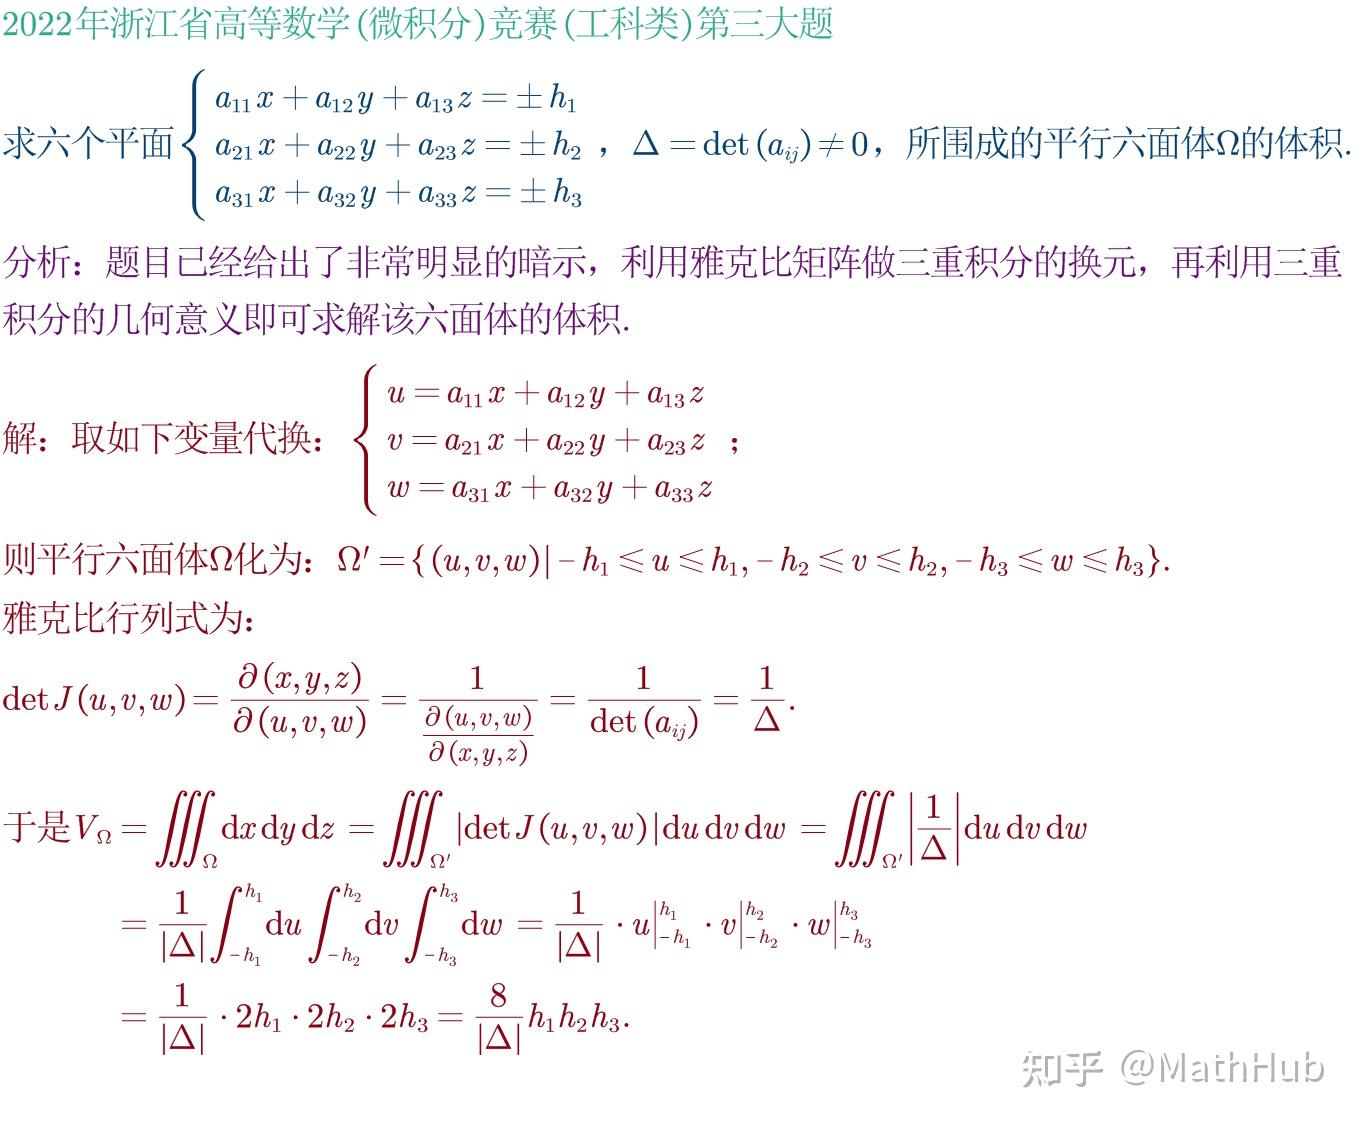 2022年浙江省高等数学(微积分)竞赛(工科类)第三大题
求六个平面{a₁₁x+a₁₂y+a₁₃z=±h₁
a₂₁x+a₂₂y+a₂₃z=±h₂ ，Δ=det(aᵢⱼ)≠0，所围成的平行六面体Ω的体积.
a₃₁x+a₃₂y+a₃₃z=±h₃
分析：题目已经给出了非常明显的暗示，利用雅克比矩阵做三重积分的换元，再利用三重
积分的几何意义即可求解该六面体的体积.
解：取如下变量代换：{u=a₁₁x+a₁₂y+a₁₃z
v=a₂₁x+a₂₂y+a₂₃z ；
w=a₃₁x+a₃₂y+a₃₃z
则平行六面体Ω化为：Ω′={(u,v,w)|-h₁≤u≤h₁,-h₂≤v≤h₂,-h₃≤w≤h₃}.
雅克比行列式为：
detJ(u,v,w)=∂(x,y,z)/∂(u,v,w)=1/(∂(u,v,w)/∂(x,y,z))=1/det(aᵢⱼ)=1/Δ.
于是V_Ω=∭_Ω dxdydz=∭_Ω′|detJ(u,v,w)|dudvdw=∭_Ω′|1/Δ|dudvdw
=1/|Δ|∫_{-h₁}^{h₁}du∫_{-h₂}^{h₂}dv∫_{-h₃}^{h₃}dw=1/|Δ|·u|_{-h₁}^{h₁}·v|_{-h₂}^{h₂}·w|_{-h₃}^{h₃}
=1/|Δ|·2h₁·2h₂·2h₃=8/|Δ|h₁h₂h₃.
知乎 @MathHub